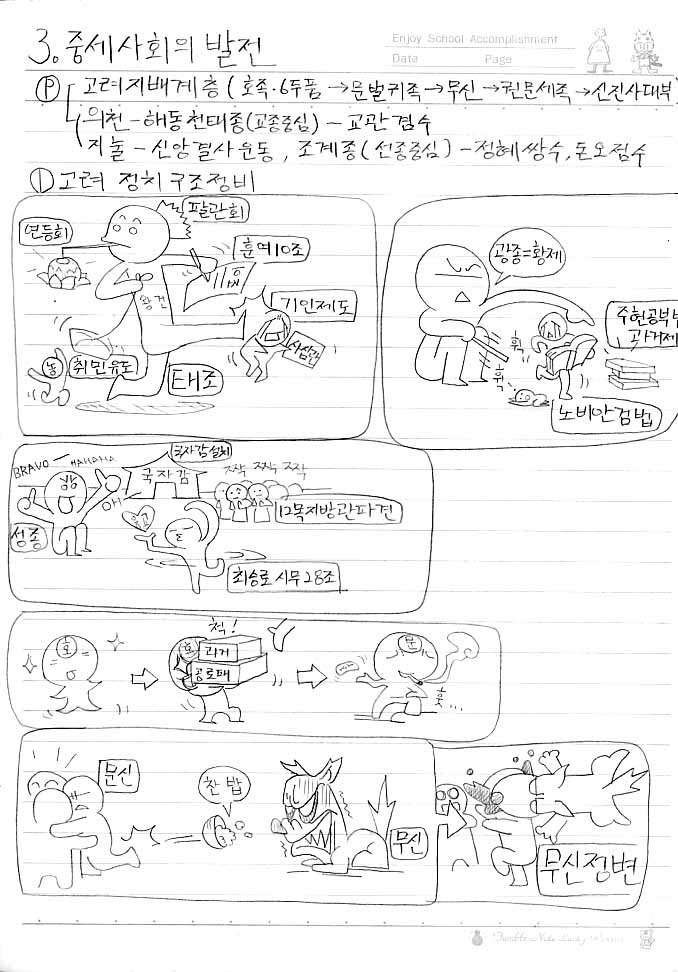 Enjoy School Accomplishment
Date Page
3. 중세사회의 발전
Ⓟ 고려지배계층 ( 호족·6두품 → 문벌귀족 → 무신 → 권문세족 → 신진사대부)
의천 - 해동천태종(교종중심) - 교관겸수
지눌 - 신앙결사운동, 조계종(선종중심) - 정혜쌍수, 돈오점수
① 고려 정치구조정비
연등회
팔관회
훈요10조
왕건
기인제도
사심관
농
취민유도
태조
광종=황제
주현공부법
과거제
휙
휙
노비안검법
BRAVO - HAHAHA
국자감설치
국자감
짝 짝 짝
왕
아
유교
12목지방관파견
성종
최승로 시무28조
호
척!
호
과거
공로패
문
훗...
문신
찬밥
무신
무신정변